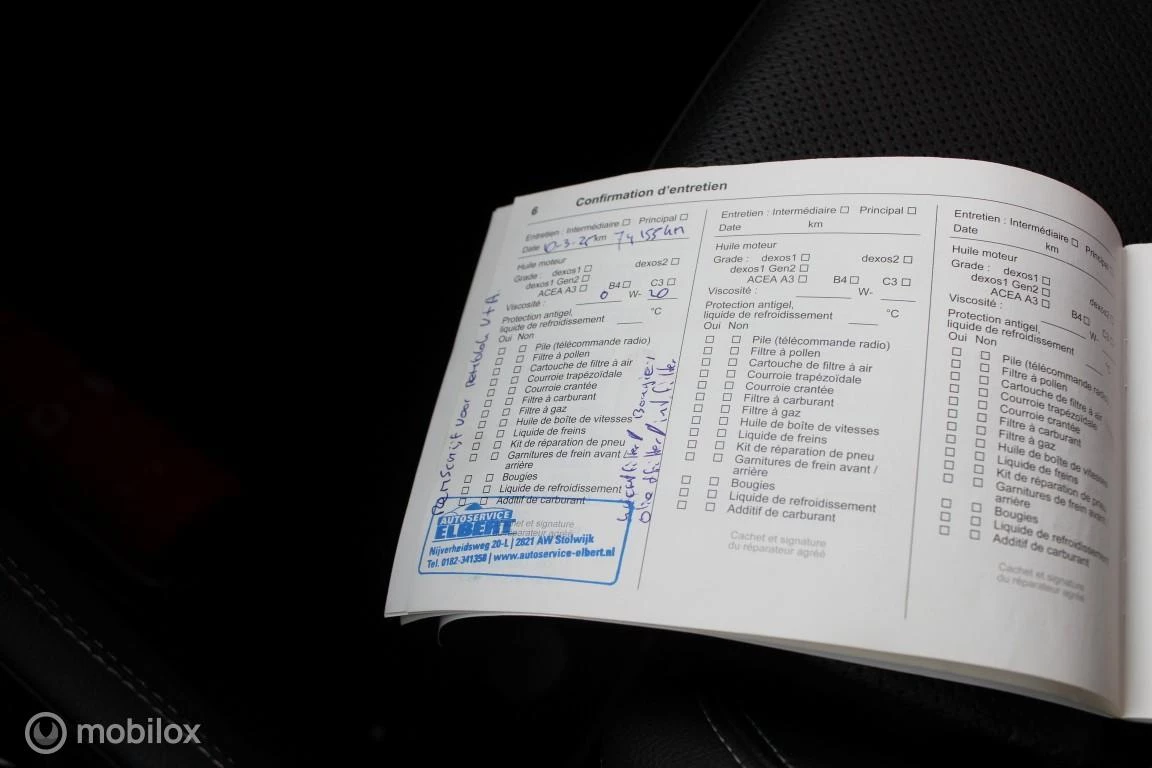 6 Confirmation d'entretien
Entretien : Intermédiaire Principal
Date km 74 155km
Huile moteur
Grade : dexos1 dexos2
dexos1 Gen2
ACEA A3 B4 C3
Viscosité : 0 W- 20
Protection antigel,
liquide de refroidissement °C
Oui Non
Pile (télécommande radio)
Filtre à pollen
Cartouche de filtre à air
Courroie trapézoïdale
Courroie crantée
Filtre à carburant
Filtre à gaz
Huile de boîte de vitesses
Liquide de freins
Kit de réparation de pneu
Garnitures de frein avant /
arrière
Bougies
Liquide de refroidissement
Additif de carburant
voor remblok V+A
Luchtfilter / Bougies
Oliefilter / int filter
AUTOSERVICE
ELBERT
et et signature
réparateur agréé
Nijverheidsweg 20-L | 2821 AW Stolwijk
Tel. 0182-341358 | www.autoservice-elbert.nl
Entretien : Intermédiaire Principal
Date km
Huile moteur
Grade : dexos1 dexos2
dexos1 Gen2
ACEA A3 B4 C3
Viscosité : W-
Protection antigel,
liquide de refroidissement °C
Oui Non
Pile (télécommande radio)
Filtre à pollen
Cartouche de filtre à air
Courroie trapézoïdale
Courroie crantée
Filtre à carburant
Filtre à gaz
Huile de boîte de vitesses
Liquide de freins
Kit de réparation de pneu
Garnitures de frein avant /
arrière
Bougies
Liquide de refroidissement
Additif de carburant
Cachet et signature
du réparateur agréé
Entretien : Intermédiaire Principal
Date km
Huile moteur
Grade : dexos1 dexos2
dexos1 Gen2
ACEA A3 B4 C3
Viscosité : W-
Protection antigel,
liquide de refroidissement °C
Oui Non
Pile (télécommande radio)
Filtre à pollen
Cartouche de filtre à air
Courroie trapézoïdale
Courroie crantée
Filtre à carburant
Filtre à gaz
Huile de boîte de vitesses
Liquide de freins
Kit de réparation de pneu
Garnitures de frein avant /
arrière
Bougies
Liquide de refroidissement
Additif de carburant
Cachet et signature
du réparateur agréé
mobilox